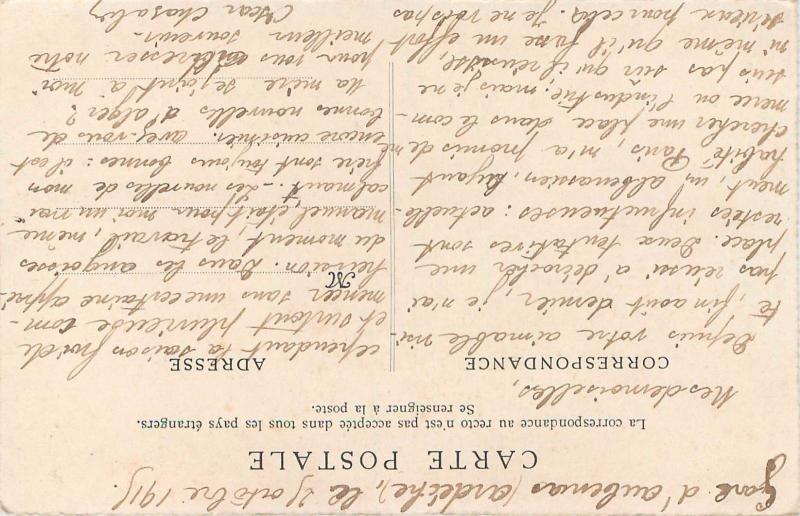 Gare d'aubenas (ardèche), le 21 octobre 1915.
CARTE POSTALE
La correspondance au recto n'est pas acceptée dans tous les pays étrangers.
Se renseigner à la poste.
Mesdemoiselles,
CORRESPONDANCE
Depuis votre aimable visi-
te, fin août dernier, je n'ai
pas réussi à dénicher une
place. Deux tentatives sont
restées infructueuses : actuelle-
ment, un albenassien, ayant
habité Paris, m'a promis de me
chercher une place dans le com-
merce ou l'industrie, mais je ne
suis pas sûr qu'il réussisse,
ni même qu'il fasse un effort
sérieux pour cela. Je ne vois pas
ADRESSE
cependant la saison froide
et surtout pluvieuse com-
mencer sans une certaine appré
M
hension. Dans les angoisses
du moment, le travail, même
manuel, était pour moi un vrai
calmant. - Les nouvelles de mon
frère sont toujours bonnes : il est
encore cuisinier. avez-vous de
bonnes nouvelles d'alger ?
Ma mère se joint à moi
pour vous adresser notre
meilleur souvenir.
Oscar